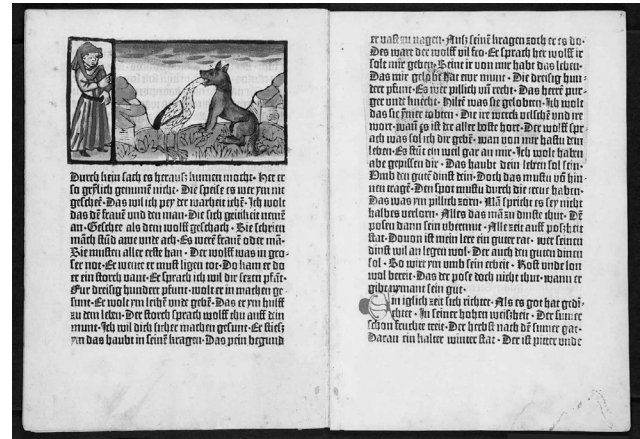 Durch kein sach es heraus kumen mocht· Het er
so geytlich genumē nicht· Die speise es wer ym nit
geschehē· Das wil ich pey der warheit iehē· Ich wolt
das dē frauē und den man· Die sich geitikeit nemē
an· Geschee als dem wolff geschach·
māch stūd awe und ach· Es weer frauē oder mā·
Sie musten aller erste han· Der wolff was in gro·
ser not· Er wente er must ligen tot· Do kam er do
er ein storch vant· Er sprach ich wil dir setzen pfāt·
Fur dreisig hundert pfunt· wolt er in machen ge
sunt· Er wolt ym leihē und gebē· Das er ym hulff
zu dem leben· Der storch sprach wolff thu auff dein
munt· Ich wil dich sicher machen gesunt· Er stiesz
ym das haubt in seinē kragen· Das pein begund
er vast zu nagen· Ausz seinē kragen zoch er es do·
Des wart der wolff vil fro· Er sprach her wolff ir
solt mir geben· Seint ir von mir habt das leben·
Das mir gelobt hat ewr munt· Die dreisig hun
dert pfunt· Es wer pillich uū recht· Das herrē pur
ger und knecht· Hiltē was sie gelobten· Ich wolt
das sie
wort· wan es ist der aller boste hort· Der wolff spr
ach was sol ich dir gebē· wan von mir hastu dein
leben· Es stūt ein weil gar an mir· Ich wolt haben
abe gepissen dir· Das haubt dein leben sol sein·
Und den gutē dinst dein· Doch das mustu vō hin
nen tragē· Den spot mustu durch die treue haben·
Das was ym pillich zorn· Mā spricht es sey nicht
halbes verlorn· Alles das mā zu dinste thut· Dē
posen dann sein ubermut· Alle zeit auff poszheit
stat· Dovon ist mein lere ein guter rat· wer seinen
dinst wil an legen wol· Der auch den guten dinen
sol· So wirt ym umb sein erbeit· Kost unde lon
wol bereit· Das der pose doch nicht thut· wann er
gibt nymant sein gut·
Ein iglich zeit sich richtet· Als es got hat gedi
chtet· In seiner hohen weiszheit· Der sumer
schon feuchte treit· Der herbst nach dē sumer gat·
Daran ein kalter winter stat· Der ist pitter unde